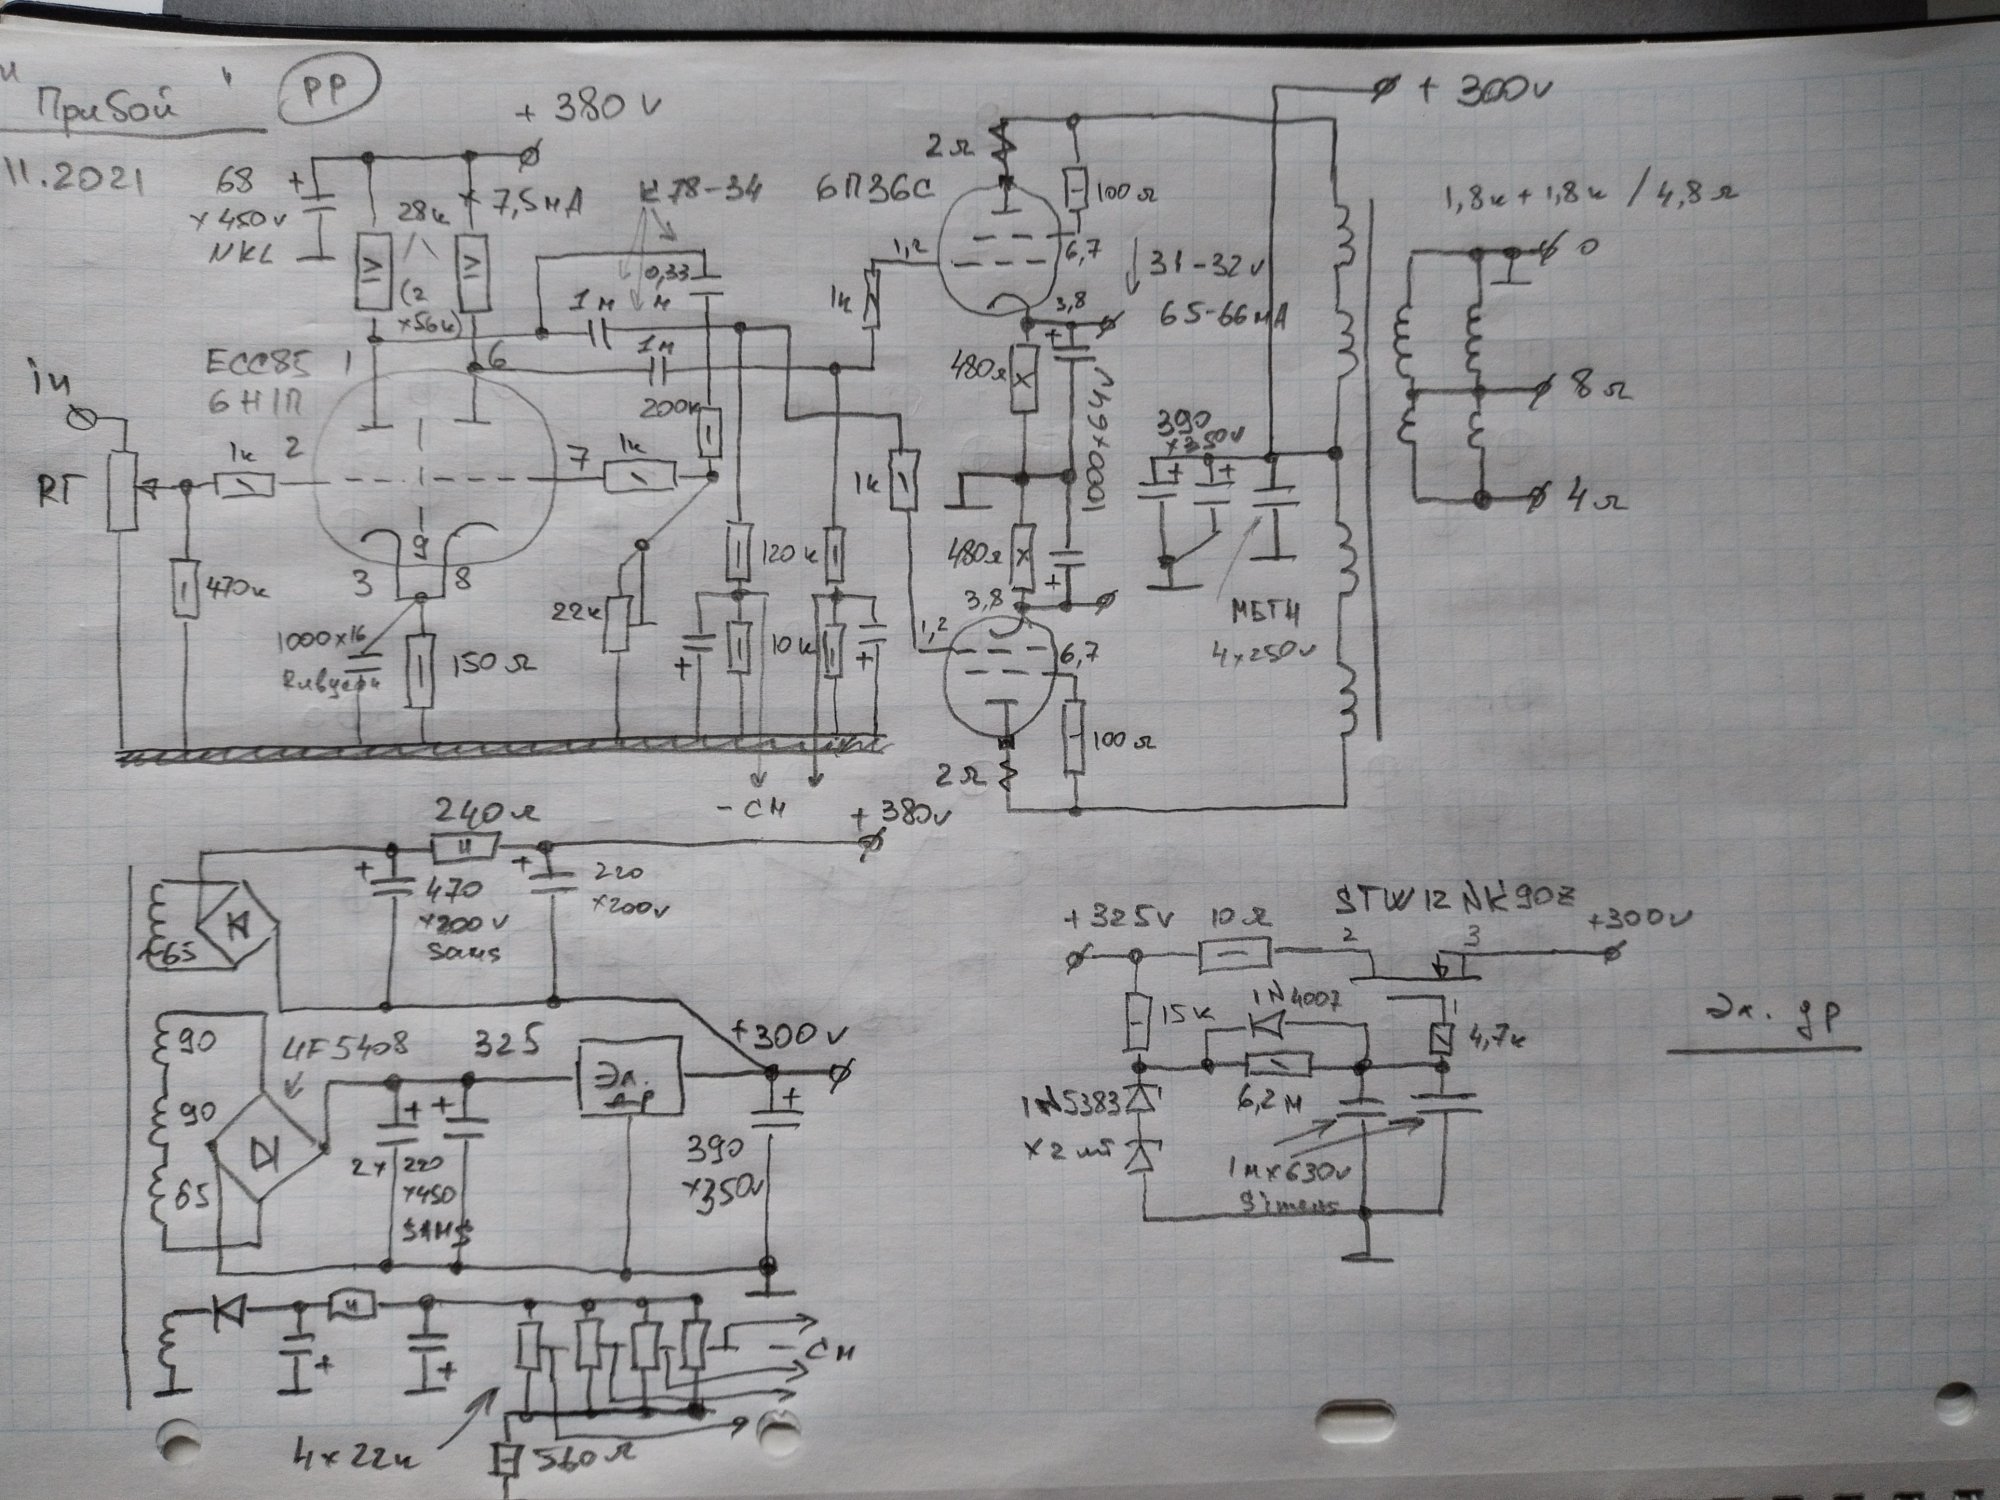 "Прибой" PP
11.2021
+ 380 v
68
x 450 v
NKL
28к
(2
x56к)
7,5 мА
К78-34
6П36С
2 Ω
100 Ω
+ 300v
1,8к + 1,8к / 4,8 Ω
0
8 Ω
4 Ω
1,2
6,7
31-32 v
65-66 мА
3,8
0,33
м
1 м
1м
1к
480Ω
1000x64v
ECC85
6Н1П
1
6
in
RT
1к
2
7
1к
200к
1к
390
x350v
9
3
8
470к
22к
120 к
480Ω
3,8
1,2
6,7
МБГЧ
4x250v
1000x16
150 Ω
10 к
100 Ω
2 Ω
- см
+ 380v
240 Ω
+
470
x200v
Sams
+
220
x200v
~65
90
90
65
UF5408
325
Эл.
др
+300v
2x
220
x450
SAMS
390
x350v
- см
4 x 22к
560 Ω
+ 325v
10 Ω
STW12NK90Z
2
3
+300v
15к
1N4007
1
4,7к
Эл. др
1N5383
x 2 шт
6,2 м
1м x630v
Simens